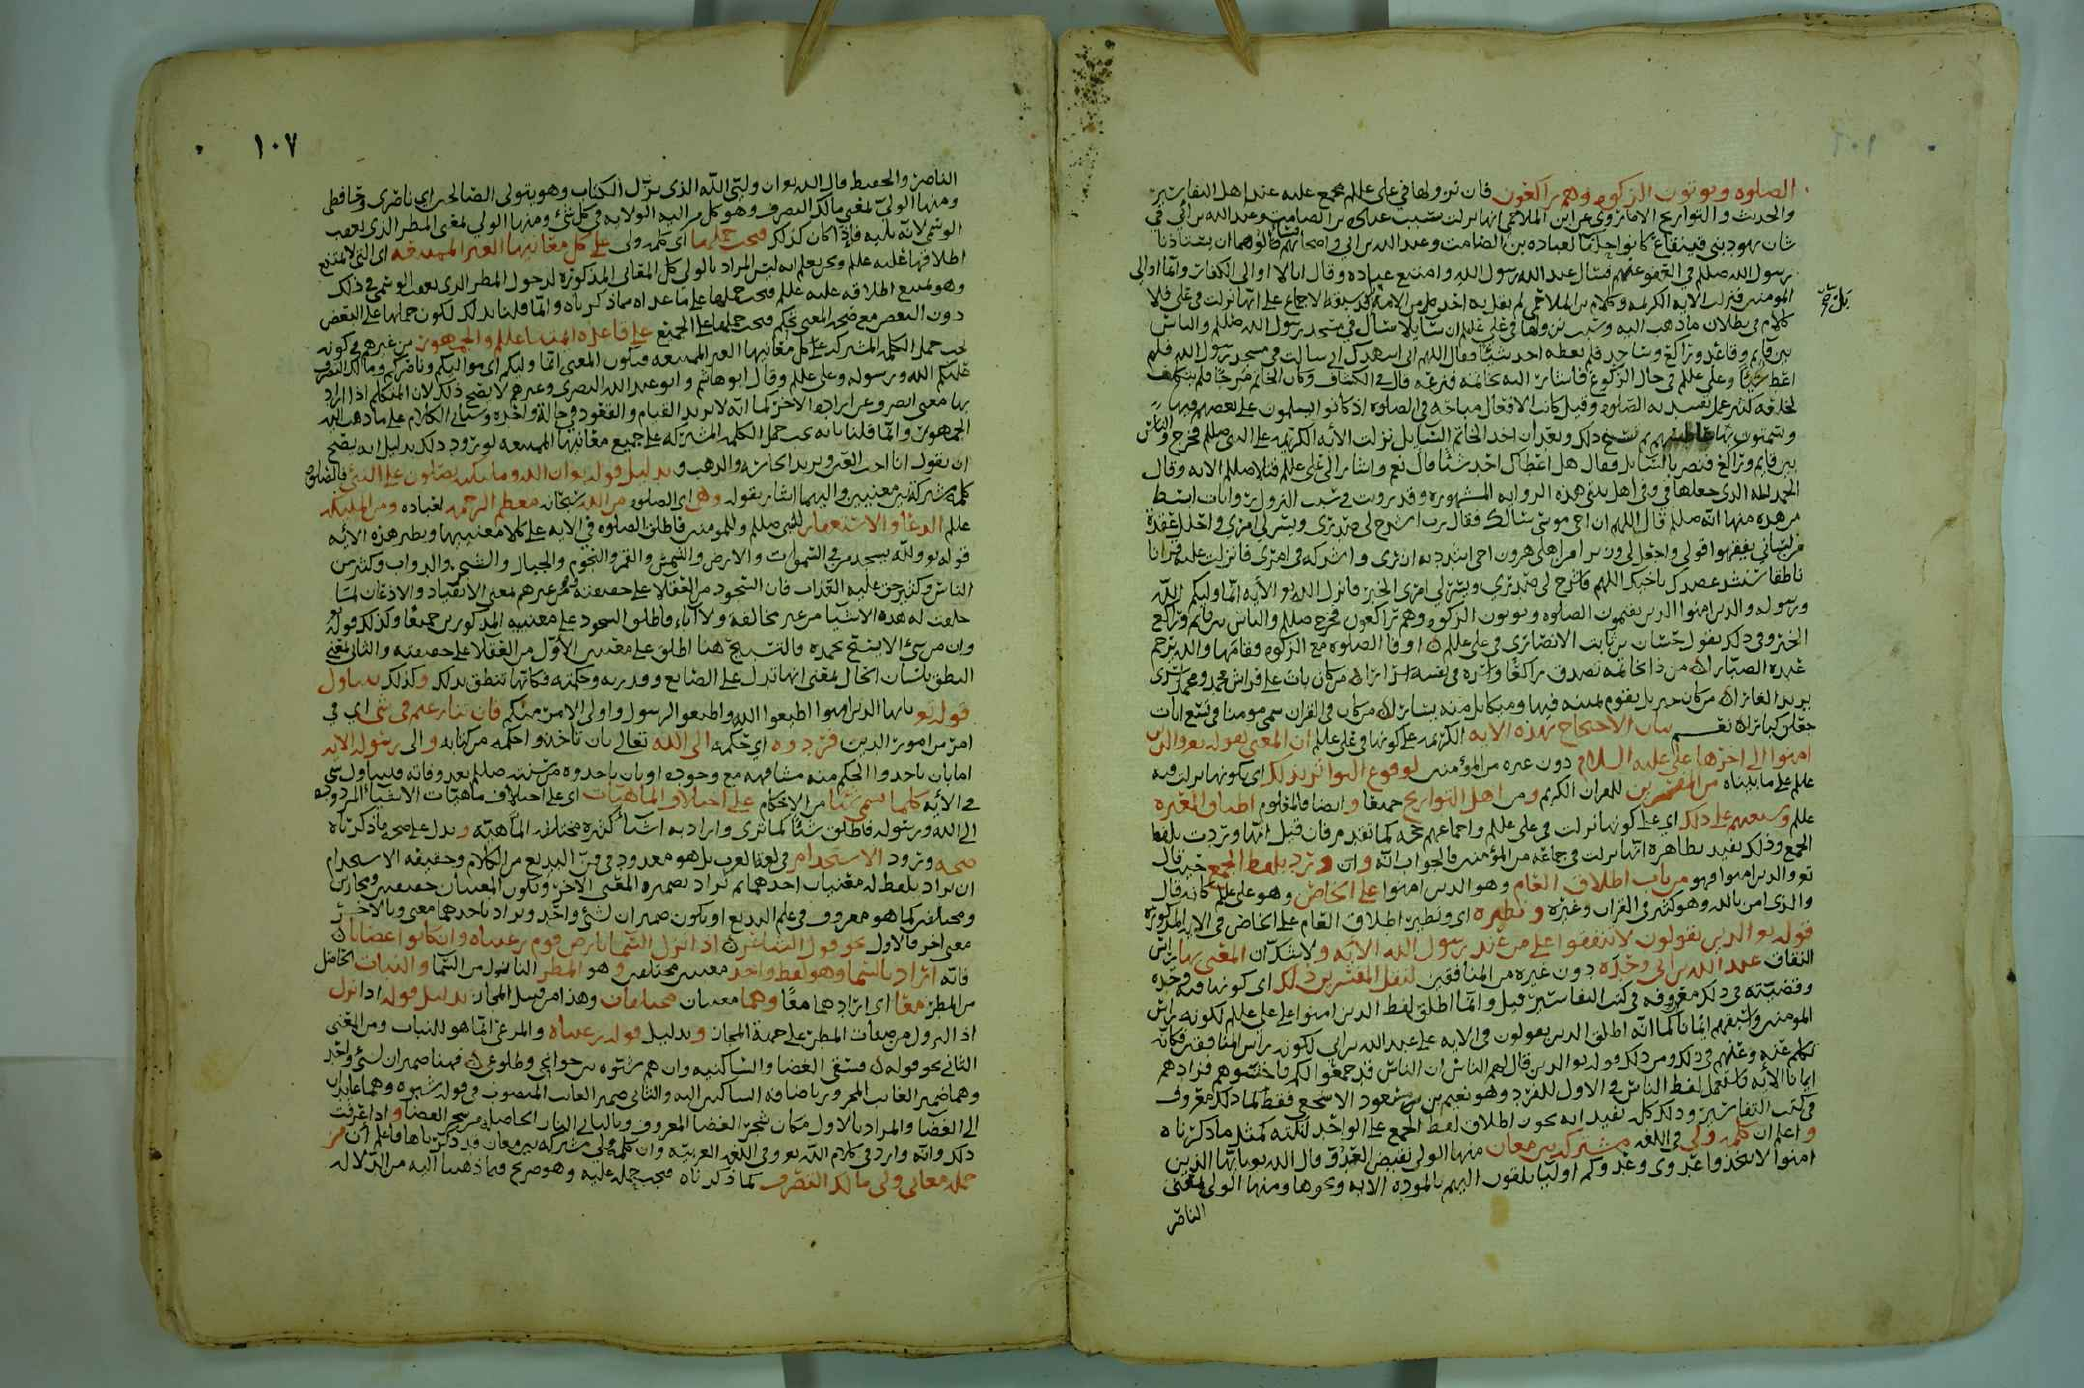 الصلوه ويوتون الزكوه وهم راكعون فان نزولها في علي علم مجمع عليه عند اهل التفاسير
والحديث والتواريخ الا ما روي عن ابن الملاحمي انها نزلت بسبب عباده بن الصامت وعبد الله بن ابي في
شان يهود بني قينقاع كانوا حلفا لعباده بن الصامت وعبد الله بن ابي
رسول الله صلم في فقال عبد الله رسول الله وامتنع عباده وقال انا لا اوالي الكفار وانما اوالي
المومنين فنزلت الايه الكريمه وكلام بن الملاحمي لم يقل به احد من الامه الاجماع على انها نزلت في علي فلا
كلام في بطلان ما ذهب اليه وسبب نزولها في علي علم ان سايلا سال في مسجد رسول الله صلم والناس
بين قايم وقاعد وراكع وساجد فلم يعطه احد شيئا فقال اللهم اني اشهدك اني سالت في مسجد رسول الله فلم
اعط شيئا وعلي علم في حال الركوع فاشار اليه بخاتمه فنزعه قال في الكشاف وكان الخاتم مرجا فلم يتكلف
لخلعه كثير عمل تفسد به الصلوه وقيل كانت الافعال مباحه في الصلوه اذ كانوا يسلمون على بعضهم فيها
ثم نسخ ذلك وبعد ان اخذ الخاتم السايل نزلت الايه الكريمه على النبي صلم فخرج والناس
بين قايم وراكع فبصر بالسايل فقال هل اعطاك احد شيئا قال نعم واشار الى علي علم فتلا صلم الايه وقال
الحمد لله الذي جعلها في وفي اهل بيتي هذه الروايه المشهوره وقد رويت في سبب النزول روايات ابسط
من هذه منها انه صلم قال اللهم ان اخي موسى سالك فقال رب اشرح لي صدري ويسر لي امري واحلل عقدة
من لساني يفقهوا قولي واجعل لي وزيرا من اهلي هرون اخي اشدد به ازري واشركه في امري فانزلت عليه قرانا
ناطقا سنشد عضدك باخيك اللهم فاشرح لي صدري ويسر لي امري الخبر فانزل الله تع الايه انما وليكم الله
ورسوله والذين امنوا الذين يقيمون الصلوه ويوتون الزكوه وهم راكعون فخرج صلم والناس بين قايم وراكع
الخبر وفي ذلك يقول حسان بن ثابت الانصاري في علي علم ن اوفا الصلوه مع الزكوه فقامها والله يرحم
عبده الصبارا ن من ذا بخاتمه تصدق راكعا واسره في نفسه اسرارا ن من كان بات على فراش محمد ومحمد اسرى
يريد الغارا ن من كان جبريل يقوم يمينه فيها وميكايل منه يسارا ن من كان في القران سمي مومنا في تسع ايات
جعلن كبارا ن نعم بيان الاحتجاج بهذه الايه الكريمه على كونها في علي علم ان المعني بقوله تع والذين
امنوا الى اخرها علي عليه السلام دون غيره من المؤمنين لوقوع التواتر بذلك اي بكونها نزلت فيه
علم على ما بيناه من المفسرين للقران الكريم ومن اهل التواريخ جميعا وايضا فالمعلوم اطباق العتره
علم وشيعتهم على ذلك اي على كونها نزلت في علي علم واجماعهم حجه كما تقدم فان قيل انها وردت بلفظ
الجمع وذلك يفيد بظاهره انها نزلت في جماعه من المؤمنين فالجواب انه وان ورد بلفظ الجمع حيث قال
تع والذين امنوا فهو من باب اطلاق العام وهو الذين امنوا على الخاص وهو علي علم كانه قال
والذي امن بالله وهو كثير في القران وغيره ونظيره اي ونظير اطلاق العام على الخاص في الايه المذكوره
قوله تع الذين يقولون لا تنفقوا على من عند رسول الله الايه ولا شك ان المعني بها راس
النفاق عبد الله بن ابي وحده دون غيره من المنافقين لنقل المفسرين ذلك اي كونها فيه وحده
وقضيته في ذلك معروفه في كتب التفاسير قيل وانما اطلق لفظ الذين امنوا على علي علم لكونه راس
المومنين واسبقهم ايمانا كما انه اطلق الذين يقولون في الايه على عبد الله بن ابي لكونه راس المنافقين فكانه
تكلم عنه وعنهم في ذلك ومن ذلك قوله تع الذين قال لهم الناس ان الناس قد جمعوا لكم فاخشوهم فزادهم
ايمانا الايه فاستعمل لفظ الناس في الاول للفرد وهو نعيم بن مسعود الاشجعي فقط كما ذلك معروف
في كتب التفاسير وذلك كله يفيد انه يجوز اطلاق لفظ الجمع على الواحد لنكته كمثل ما ذكرناه
واعلم ان كلمه ولي في اللغه مشتركه بين معان منها الولي نقيض العدو قال الله تع يا ايها الذين
امنوا لا تتخذوا عدوي وعدوكم اوليا تلقون اليهم بالموده الايه ونحوها ومنها الولي بمعنى
الناصر
١٠٧
الناصر والحفيظ قال الله تع ان وليي الله الذي نزل الكتاب وهو يتولى الصالحين اي ناصري وحافظي
ومنها الولي بمعنى مالك التصرف وهو كل من اليه الولايه في كل شيء ومنها الولي بمعنى المطر الذي يعقب
الوسمي لانه يليه فاذا كان كذلك فيجب حملها اي كلمه ولي على كل معانيها الغير الممتنعه اي التي لا يمتنع
اطلاقها عليه علم ونحن نعلم انه ليس المراد بالولي كل المعاني المذكوره لدخول المطر الذي يعقب الوسمي في ذلك
وهو يمتنع اطلاقه عليه علم فيجب حملها على ما عداه مما ذكرناه وانما قلنا بذلك لكون حملها على البعض
دون البعض مع صحه المعنى تحكم فيجب حملها على الجميع على قاعده ائمتنا علم والجمهور من غيرهم في كونه
يجب حمل الكلمه المشتركه على كل معانيها الغير الممتنعه فيكون المعنى انما وليكم اي مواليكم وناصركم ومالك التصرف
عليكم الله ورسوله وعلي علم وقال ابو هاشم وابو عبد الله البصري وغيرهم لا يصح ذلك لان المتكلم اذا اراد
بها معنى انصرف عن ارادة الاخر كما انه لا يريد القيام والقعود في حالة واحده وسياتي الكلام على ما ذهب اليه
الجمهور وانما قلنا بانه يجب حمل الكلمه المشتركه على جميع معانيها الممتنعه لورود ذلك بدليل انه يصح
ان يقول انا احب العين ويريد الجاريه والذهب و بدليل قوله تع ان الله وملايكته يصلون على النبي فالصلوه
كلمة مشتركة بين معنيين واليهما اشار بقوله وهي اي الصلوه من الله سبحانه معظم الرحمه لعباده ومن الملايكه
علم الدعا والاستغفار للنبي صلم وللمومنين فاطلق الصلوه في الايه على كلا معنييها ونظير هذه الايه
قوله تع ولله يسجد من في السموات والارض والشمس والقمر والنجوم والجبال والشجر والدواب وكثير من
الناس وكثير حق عليه العذاب فان السجود من العقلا على حقيقته ومن غيرهم بمعنى الانقياد والاذعان لما
خلقت له هذه الاشيا من غير مخالفه ولا اباء فاطلق السجود على معنييه المذكورين جميعا وكذلك قوله
وان من شيء الا يسبح بحمده فالتسبيح هنا اطلق على معنيين الاول من العقلا على حقيقته والثاني بمعنى
النطق بلسان الحال بمعنى انها تدل على الصانع وقدرته وحكمته فكانها تنطق بذلك وكذلك يتناول
قوله تع يا ايها الذين امنوا اطيعوا الله واطيعوا الرسول واولي الامر منكم فان تنازعتم في شيء اي في
امر من امور الدين فردوه اي حكمه الى الله تعالى بان تاخذوا حكمه من كتابه والى رسوله الايه
اما بان ياخذوا الحكم منه مشافهه مع وجوده او بان ياخذوه من سنته صلم بعد وفاته فيتناول شيء
في الايه كلما سمي شيئا من الاحكام على اختلاف الماهيات اي على اختلاف ماهيات الاشياء المردوده
الى الله ورسوله فاطلق شيئا كما ترى واراد به اشياء كثيره مختلفه الماهيه ويدل على صحة ما ذكرناه
صحه ورود الاستخدام في لغة العرب بل هو معدود في فن البديع من الكلام وحقيقه الاستخدام
ان يراد بلفظ له معنيان احدهما ثم يراد بضميره المعنى الاخر ويكون المعنيان حقيقيين ومجازين
ومختلفين كما هو معروف في علم البديع او يكون ضميران لشيء واحد ويراد باحدهما معنى وبالاخر
معنى اخر فالاول نحو قول الشاعر ن اذا نزل السما بارض قوم رعيناه وان كانوا غضابا ن
فانه اراد بالسما وهو لفظ واحد معنيين مختلفين وهو المطر النازل من السما والنبات الحاصل
من المطر معا اي ارادهما معا وهما معنيان مختلفان وهذا من قبيل المجاز بدليل قوله اذا نزل
اذ النزول من صفات المطر على جهة المجاز وبدليل قوله رعيناه والمرعي انما هو للنبات ومن المعنى
الثاني نحو قوله ن فسقى الغضا والساكنيه وان هم شبوه بين جوانحي وضلوعي ن فهنا ضميران لشيء واحد
وهما ضمير الغايب المجرور باضافة الساكنين اليه والثاني ضمير الغايب المنصوب في قوله شبوه وهما عايدان
الى الغضا والمراد بالاول مكان شجر الغضا المعروف وبالثاني النار الحاصله من شجر الغضا واذا عرفت
ذلك وانه وارد في كلام الله تع وفي اللغه العربيه وان كلمة ولي مشتركه بين معان قد ذكرناها فاعلم ان من
جمله معاني ولي مالك التصرف كما ذكرناه فيجب حمله عليه وهو صريح فيما ذهبنا اليه من الدلاله